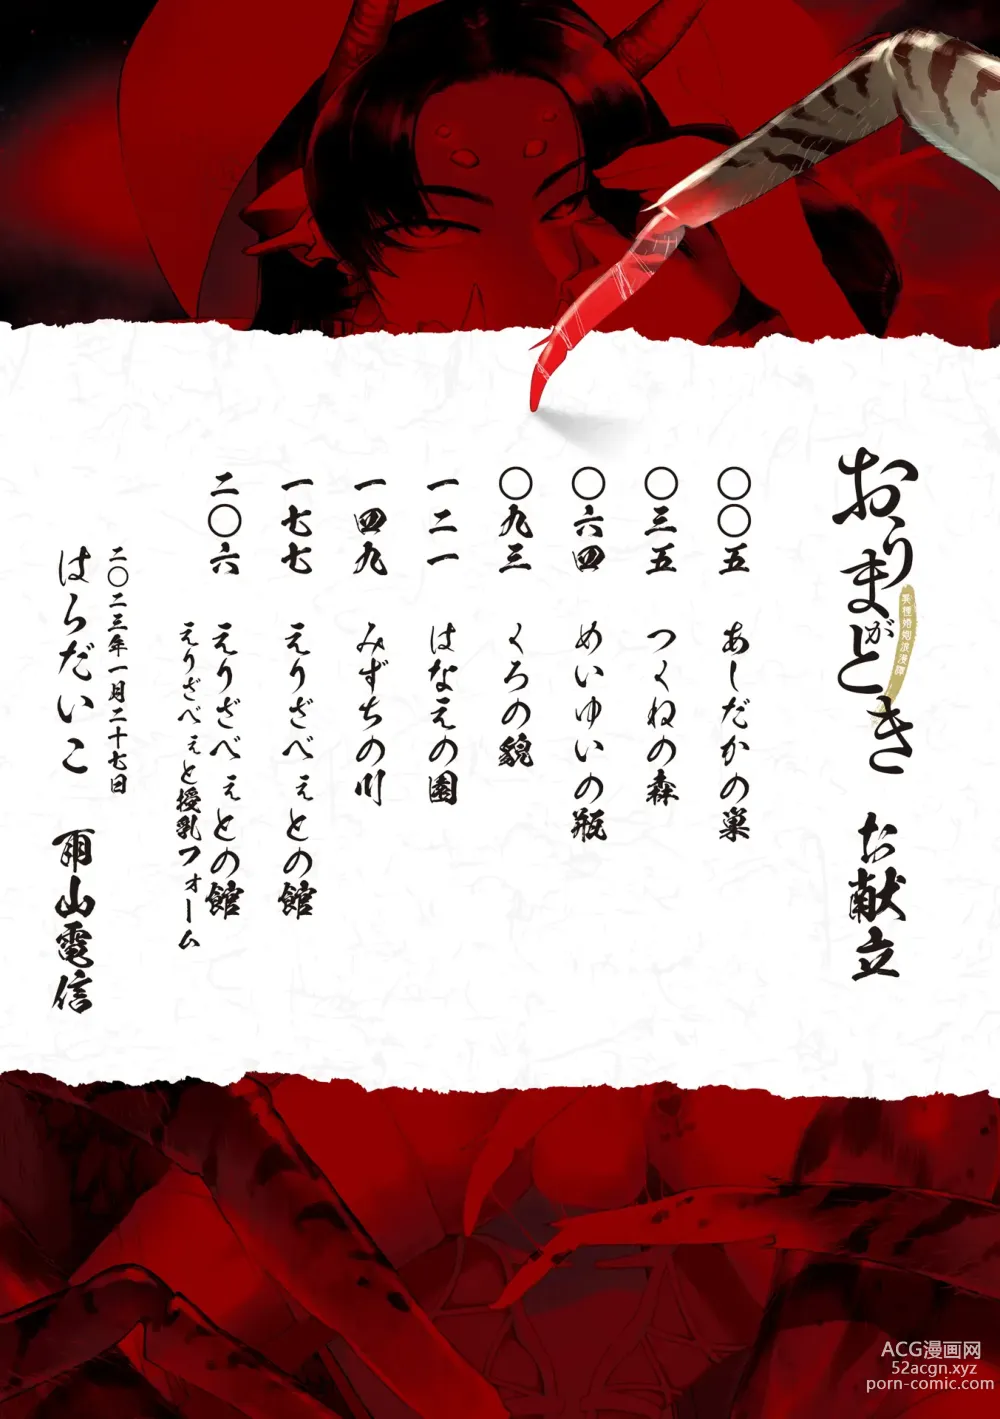 おうまがとき お献立
異種婚姻浪漫譚
〇〇五 あしだかの巣
〇三五 つくねの森
〇六四 めいゆいの瓶
〇九三 くろの貌
一二一 はなえの園
一四九 みずちの川
一七七 えりざべぇとの館
二〇六 えりざべぇとの館
えりざべぇと授乳フォーム
二〇二三年一月二十七日
はらだいこ 雨山電信
ACG漫画网
52acgn.xyz
porn-comic.com